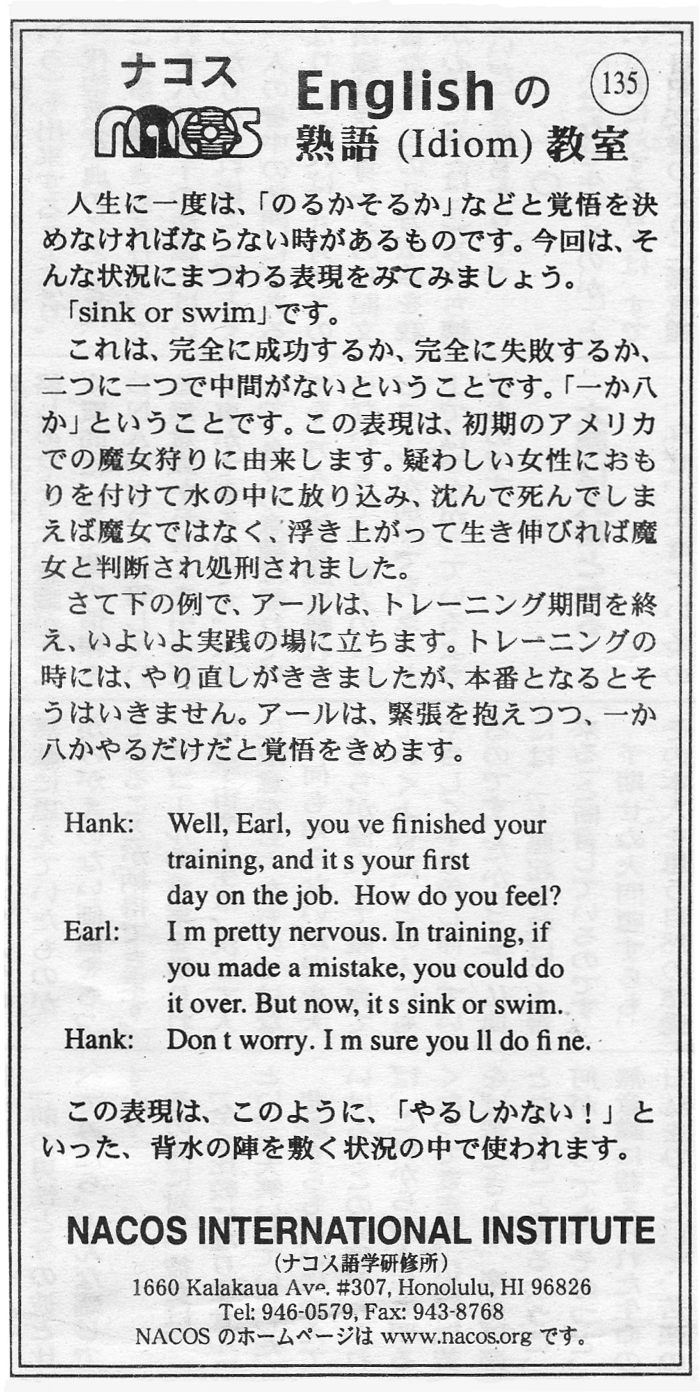 ナコス
nacos
Englishの
135
熟語 (Idiom) 教室
人生に一度は、「のるかそるか」などと覚悟を決
めなければならない時があるものです。今回は、そ
んな状況にまつわる表現をみてみましょう。
「sink or swim」です。
これは、完全に成功するか、完全に失敗するか、
二つに一つで中間がないということです。「一か八
か」ということです。この表現は、初期のアメリカ
での魔女狩りに由来します。疑わしい女性におも
りを付けて水の中に放り込み、沈んで死んでしま
えば魔女ではなく、浮き上がって生き伸びれば魔
女と判断され処刑されました。
さて下の例で、アールは、トレーニング期間を終
え、いよいよ実践の場に立ちます。トレーニングの
時には、やり直しがききましたが、本番となるとそ
うはいきません。アールは、緊張を抱えつつ、一か
八かやるだけだと覚悟をきめます。
Hank: Well, Earl, you ve finished your
training, and it s your first
day on the job. How do you feel?
Earl: I m pretty nervous. In training, if
you made a mistake, you could do
it over. But now, it s sink or swim.
Hank: Don t worry. I m sure you ll do fine.
この表現は、このように、「やるしかない！」と
いった、背水の陣を敷く状況の中で使われます。
NACOS INTERNATIONAL INSTITUTE
(ナコス語学研修所)
1660 Kalakaua Ave. #307, Honolulu, HI 96826
Tel: 946-0579, Fax: 943-8768
NACOS のホームページは www.nacos.org です。